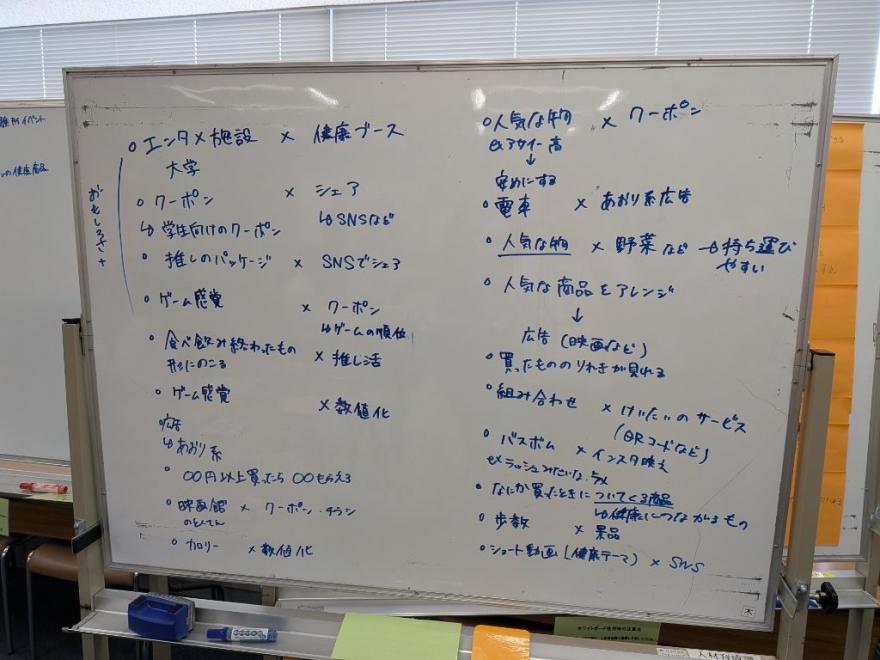 健康商品
おもしろさ
○エンタメ施設 × 健康ブース
大学
○クーポン × シェア
↳学生向けのクーポン ↳SNSなど
○推しのパッケージ × SNSでシェア
○ゲーム感覚 × クーポン
↳ゲームの順位
○食べ飲み終わったもの × 推し活
形にのこる
○ゲーム感覚 × 数値化
広告
↳あおり系
○〇〇円以上買ったら〇〇もらえる
○映画館 × クーポン・チラシ
のとくてん
○カロリー × 数値化
○人気な物 × クーポン
ex アサイー 高
↓
安めにする
○電車 × あおり系広告
○人気な物 × 野菜など →持ち運び
やすい
○人気な商品をアレンジ
↓
広告(映画など)
○買ったもののりれきが見れる
○組み合わせ × けいたいのサービス
(QRコードなど)
○バスボム × インスタ映え
ex ラッシュみたいな
○なにか買ったときについてくる商品
↳健康につながるもの
○歩数 × 景品
○ショート動画(健康テーマ) × SNS
木